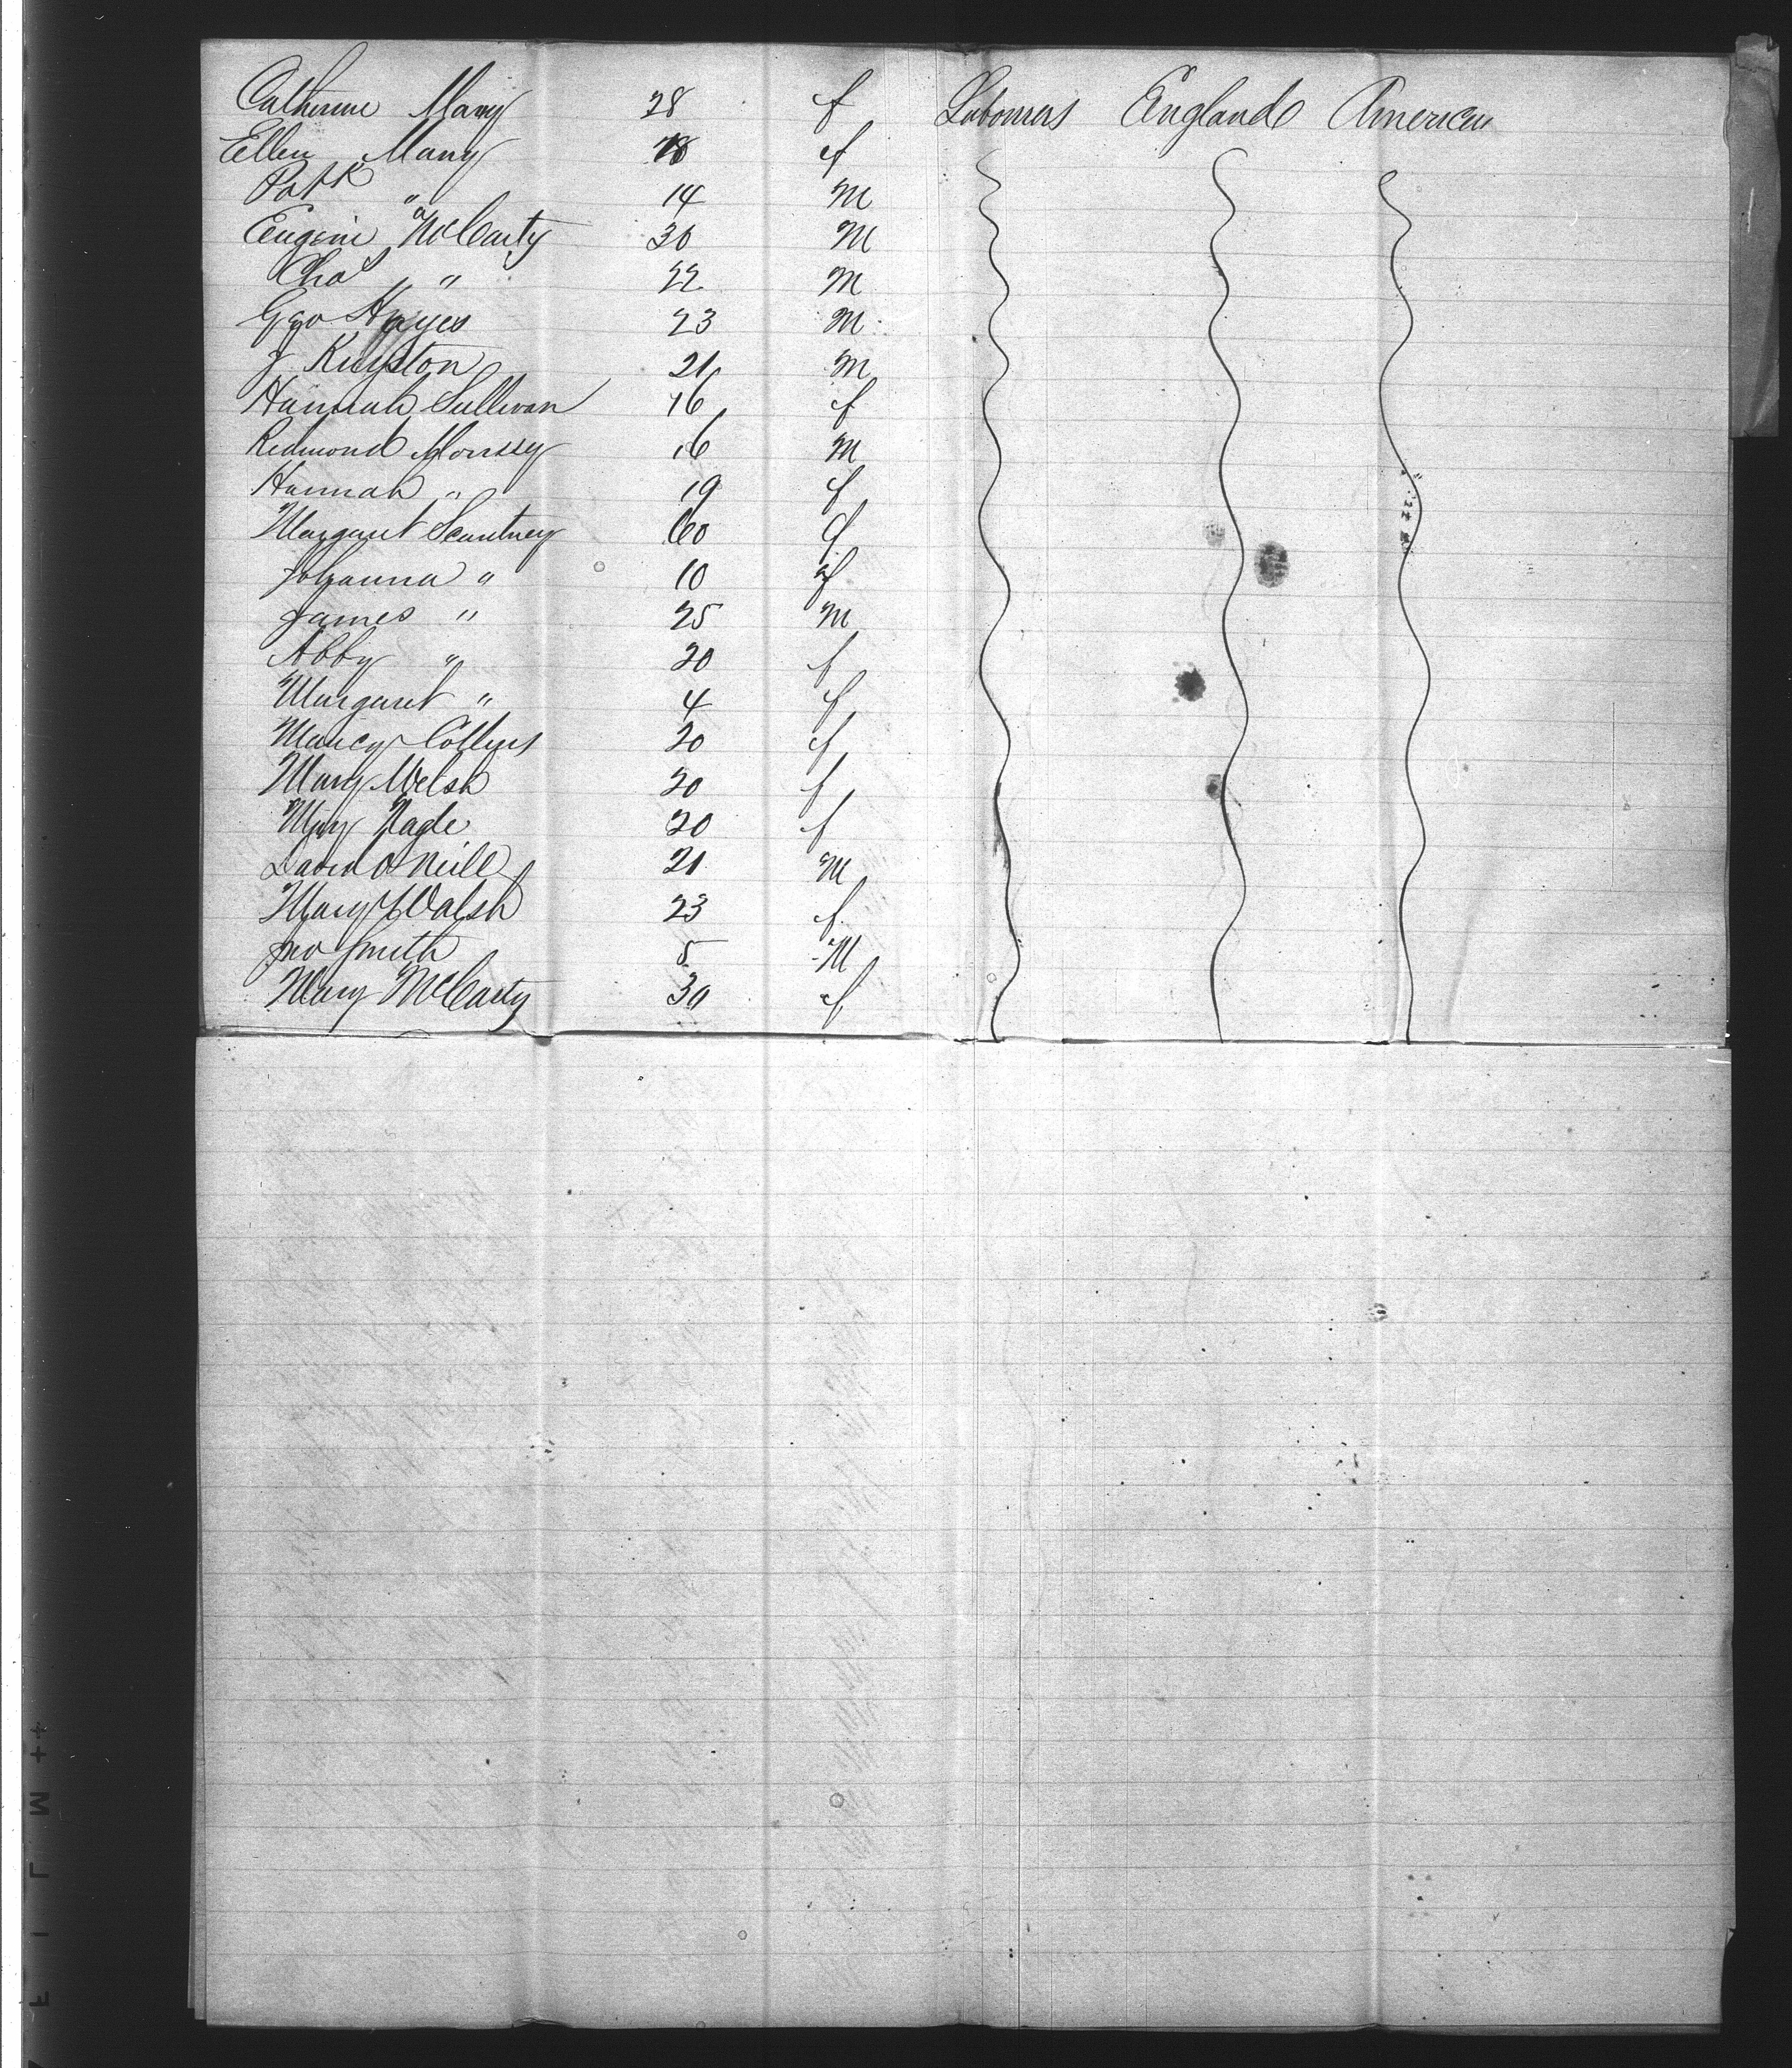 Catherine Many 28 f Labourers England America
Ellen Many 18 f
Patk " 14 M
Eugene McCarty 30 M
Chas " 22 M
Geo Hayes 23 M
J 21 M
Hannah Sullivan 16 f
Redmond Morrssy 16 M
Hannah " 19 f
Margaret 60 f
Johanna " 10 f
James " 25 M
Abby " 20 f
Margaret " 4 f
Collins 20 f
Mary Welsh 20 f
Mary Nagle 20 f
David O Neill 21 M
Mary Walsh 23 f
Jno Smith 5 M
Mary McCarty 30 f